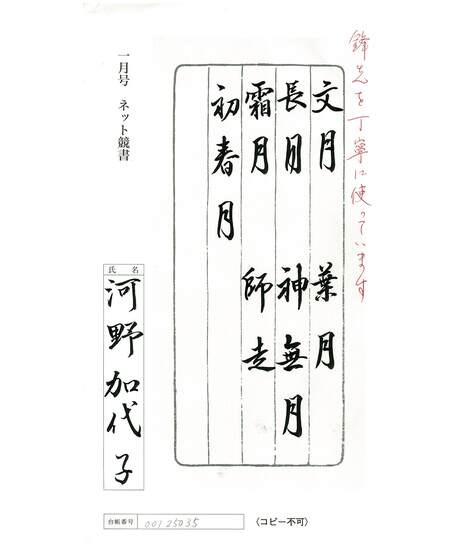 鋒先を丁寧に使っています
文月 葉月
長月 神無月
霜月 師走
初春月
一月号 ネット競書
氏名
河野加代子
台帳番号 00125035
〈コピー不可〉